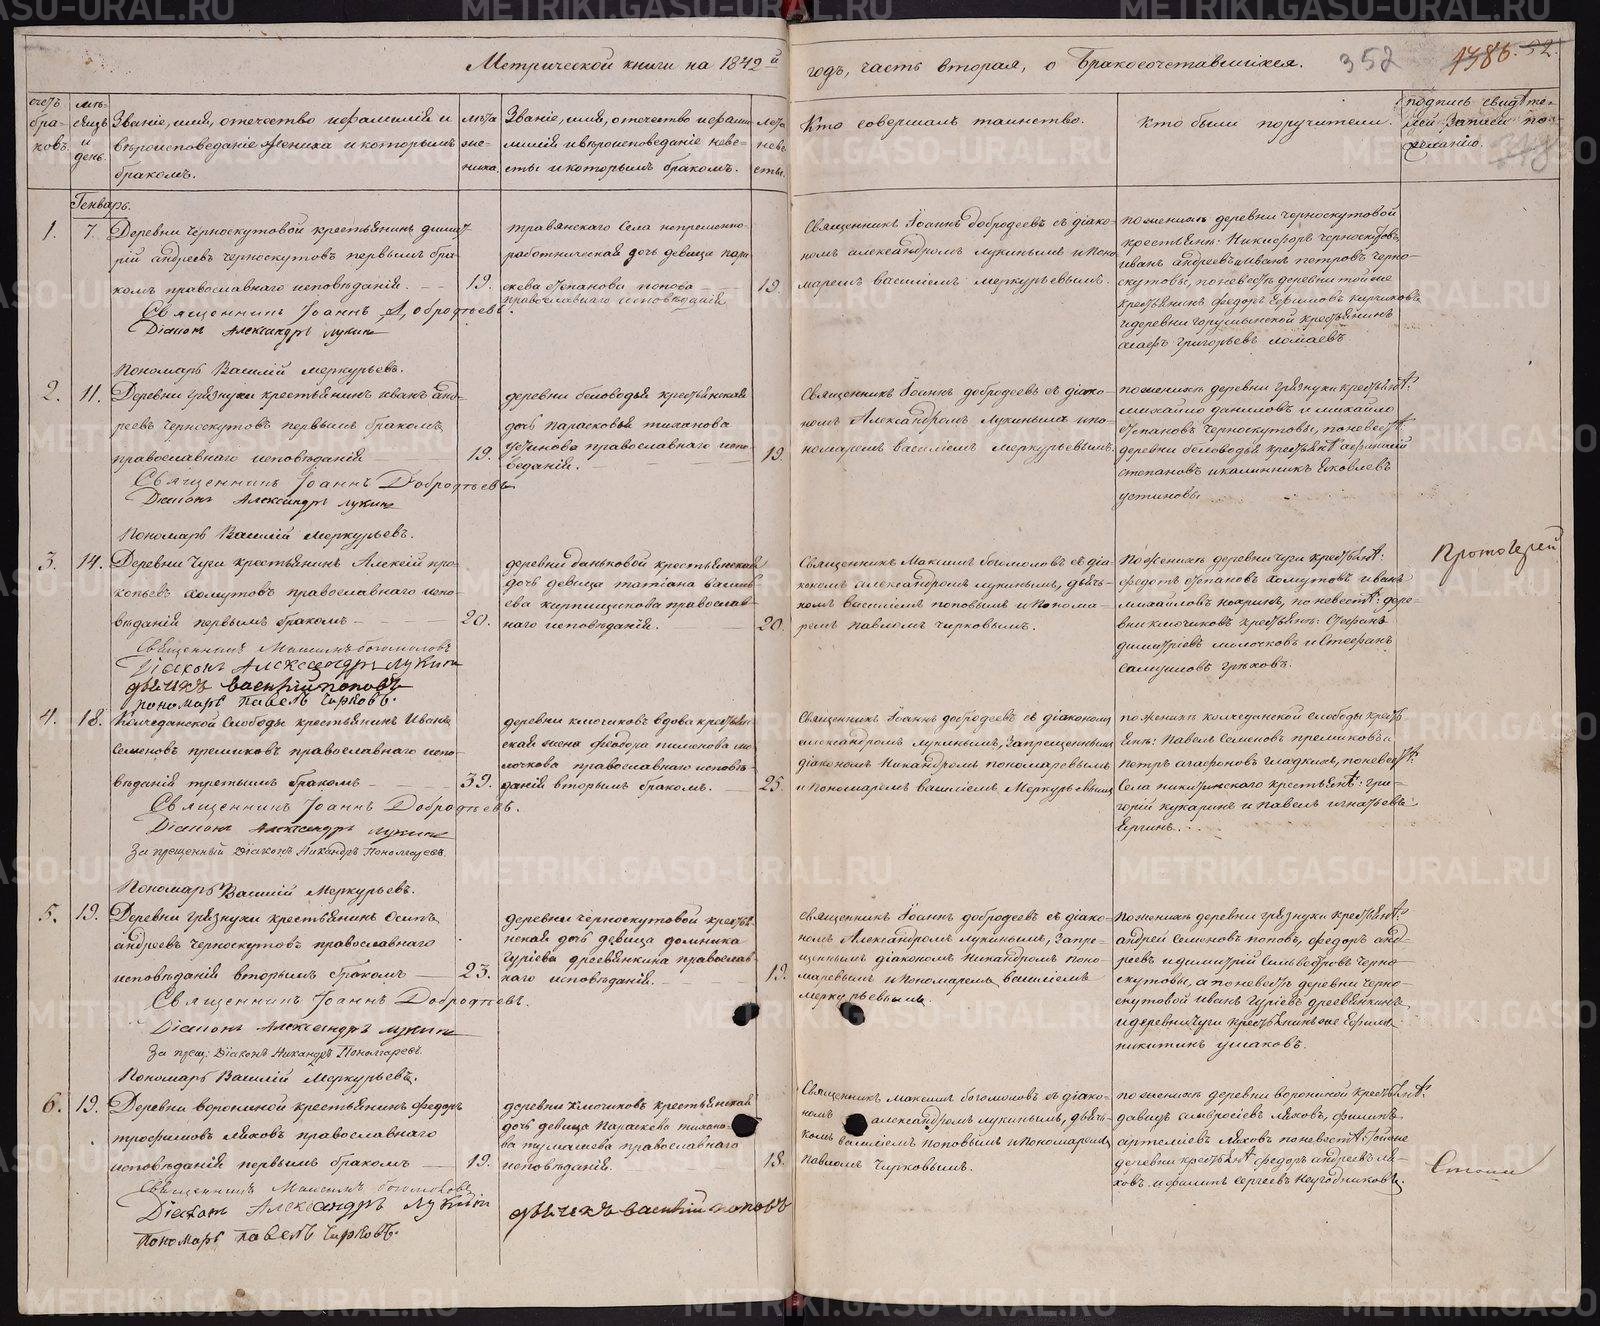 Метрической книги на 1842й
годъ, часть вторая, о Бракосочетавшихся.
352
счетъ браковъ.
мѣсяцъ и день.
Званіе, имя, отечество и фамилія и
вѣроисповеданіе жениха и которымъ
бракомъ.
лѣта жениха.
Званіе, имя, отечество и фамилія и вѣроисповеданіе невесты и которымъ бракомъ.
лѣта невесты.
Кто совершалъ таинство.
Кто были поручители.
подпись свидѣтелей записи по желанію.
Генварь.
1. 7.
Деревни Черноскутовой крестьянинъ Димит-
рій андреевъ черноскутовъ первымъ бра-
комъ православнаго исповѣданія. 19.
Священникъ Іоаннъ Добродѣевъ.
Діаконъ Александръ Лукинъ
Пономарь Василій Меркурьевъ.
травянскаго Села непременно-
работнической дочь девица пара-
скева степанова попова
православнаго исповѣданія 19.
Священникъ Іоаннъ добродеевъ съ діако-
номъ александромъ лукинымъ и Поно-
маремъ василіемъ меркурьевымъ.
по женихѣ деревни черноскутовой
крестьяне: Никифоръ черноскутовъ,
иванъ андреевъ и иванъ петровъ черно-
скутовы, по невестѣ деревни той же
крестьянинъ федоръ Ефимовъ
и деревни крестьянинъ
григорьевъ
2. 11.
Деревни Грязнухи крестьянинъ иванъ анд-
реевъ черноскутовъ первымъ бракомъ
православнаго исповѣданія 19.
Священникъ Іоаннъ Добродѣевъ
Діаконъ Александръ лукинъ
Пономарь Василій Меркурьевъ.
деревни беловодья крестьянская
дочь парасковья тиханова
Устинова православнаго испо-
веданія. 19.
Священникъ Іоаннъ добродеевъ съ діако-
номъ Александромъ лукинымъ и по-
номаремъ василіемъ меркурьевымъ.
по женихѣ деревни грязнухи крестьянѣ:
михайло даниловъ и михайло
степановъ черноскутовы, по невестѣ
деревни беловодья крестьянѣ
степановъ и калинникъ Яковлевъ
устиновы
3. 14.
Деревни Чуги крестьянинъ Алексій про-
копьевъ хомутовъ православнаго испо-
вѣданія первымъ бракомъ 20.
Священникъ Максимъ богомоловъ
Діаконъ Александръ Лукинъ
дьячекъ василій поповъ
пономарь Павелъ Чирковъ.
деревни даньковой крестьянская
дочь девица татіана василь-
ева кирпищикова православ-
наго исповѣданія. 20.
Священникъ Максимъ богомоловъ съ діа-
кономъ александромъ лукинымъ, дьячь-
комъ василіемъ поповымъ и Понома-
ремъ павломъ чирковымъ.
По женихѣ деревни чуги крестьянѣ:
федотъ степановъ хомутовъ иванъ
михайловъ по невестѣ: дере-
вни ключиковъ крестьяне: Стефанъ
димитріевъ молочковъ и Стефанъ
самуиловъ
Протоіерей
4. 18.
Колчеданской Слободы крестьянинъ Иванъ
Семеновъ премиковъ православнаго испо-
вѣданія третьимъ бракомъ 39.
Священникъ Іоаннъ Добродѣевъ.
Діаконъ Александръ лукинъ
Запрещенный Діаконъ Никандръ Пономаревъ.
Пономарь Василій Меркурьевъ.
деревни ключиковъ вдова крестьян-
ская жена Феодора пименова мо-
лочкова православнаго исповѣ-
данія вторымъ бракомъ. 25.
Священникъ Іоаннъ добродеевъ съ діакономъ
александромъ лукинымъ, запрещеннымъ
діакономъ Никандромъ пономаревымъ
и Пономаремъ василіемъ Меркурьевымъ
по женихѣ колчеданской слободы кресть-
яне: Павелъ Семеновъ премиковъ и
петръ агафоновъ гладкихъ, по невестѣ:
Села никитинскаго крестьянѣ: гри-
горій кукаринъ и павелъ игнатьевъ
5. 19.
Деревни грязнухи крестьянинъ Осипъ
андреевъ черноскутовъ православнаго
исповѣданія вторымъ бракомъ 23.
Священникъ Іоаннъ Добродѣевъ.
Діаконъ Александръ лукинъ
Запрещ: Діаконъ Никандръ Пономаревъ.
Пономарь Василій Меркурьевъ.
деревни черноскутовой кресть-
янская дочь девица домника
гуріева древянкина православ-
наго исповѣданія. 19.
Священникъ Іоаннъ добродеевъ съ діако-
номъ Александромъ лукинымъ, Запре-
щеннымъ діакономъ Никандромъ поно-
маревымъ и Пономаремъ василіемъ
меркурьевымъ.
По женихѣ деревни грязнухи крестьянѣ:
андрей Семеновъ поповъ, федоръ анд-
реевъ и димитрій Сильвестровъ черно-
скутовы, а по невестѣ деревни черно-
скутовой иванъ Гуріевъ древянкинъ
и деревни Чуги крестьянинъ же Ефимъ
никитинъ ушаковъ.
6. 19.
Деревни ворониной крестьянинъ федоръ
трофимовъ ляховъ православнаго
исповѣданія первымъ бракомъ 19.
Священникъ Максимъ богомоловъ
Діаконъ Александръ Лукинъ
Пономарь Павелъ Чирковъ.
деревни Ключиковъ крестьянская
дочь девица Параскева тихано-
ва православнаго
исповѣданія. 18.
дьячекъ василій поповъ
Священникъ максимъ богомоловъ съ діако-
номъ александромъ лукинымъ, дьячь-
комъ василіемъ поповымъ и Пономаремъ
Павломъ Чирковымъ.
по женихѣ деревни ворониной крестьянѣ:
давидъ амвросіевъ ляховъ, филипъ
артеміевъ ляховъ по невестѣ: той же
деревни крестьянѣ федоръ андреевъ ля-
ховъ и филипъ сергеевъ Неугодниковъ.
METRIKI.GASO-URAL.RU